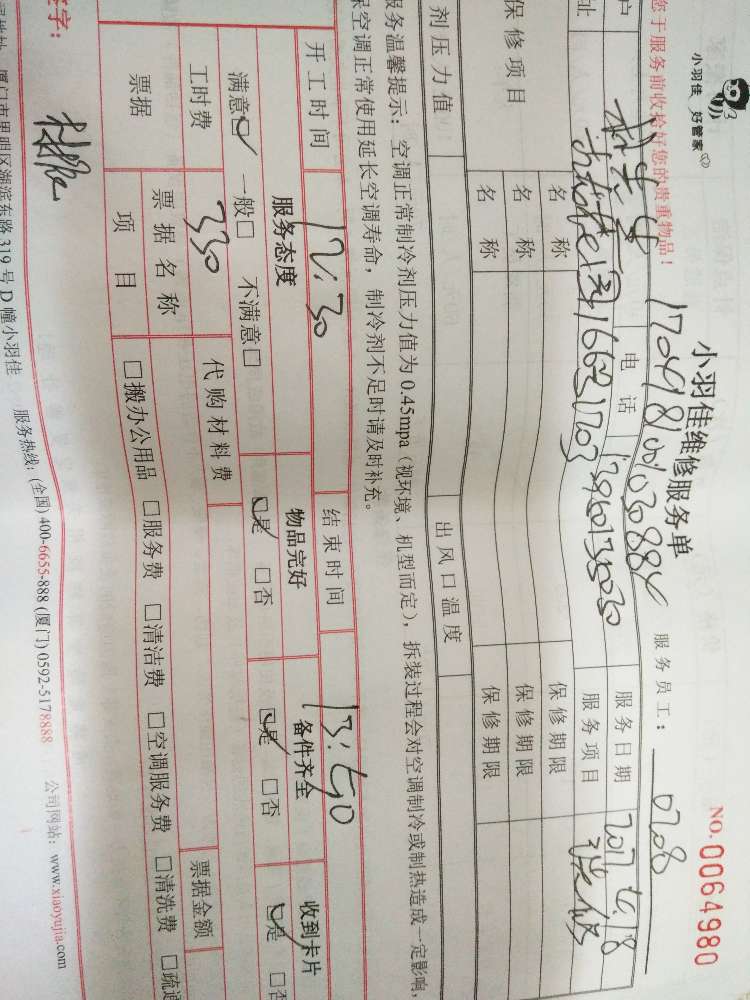 小羽佳 好管家
小羽佳维修服务单
NO.0064980
您于服务前收拾好您的贵重物品!
服务员工: 0208
户
电话
服务日期
址
1703
服务项目
保修项目
名称
保修期限
名称
保修期限
名称
保修期限
剂压力值
出风口温度
服务温馨提示: 空调正常制冷剂压力值为 0.45mpa (视环境、机型而定), 拆装过程会对空调制冷或制热造成一定影响,
保空调正常使用延长空调寿命, 制冷剂不足时请及时补充。
开工时间 12:30 结束时间 13:50
服务态度 物品完好 备件齐全 收到卡片
满意☑ 一般□ 不满意□ ☑是 □否 ☑是 □否 ☑是 □否
工时费 330 代购材料费
票据 票据名称 票据金额
项目 □搬办公用品 □服务费 □清洁费 □空调服务费 □清洗费 □疏通
签字:
厦门市思明区湖滨东路 319 号 D 幢小羽佳 服务热线: (全国) 400-6655-888 (厦门) 0592-5178888 公司网站: www.xiaoyujia.com